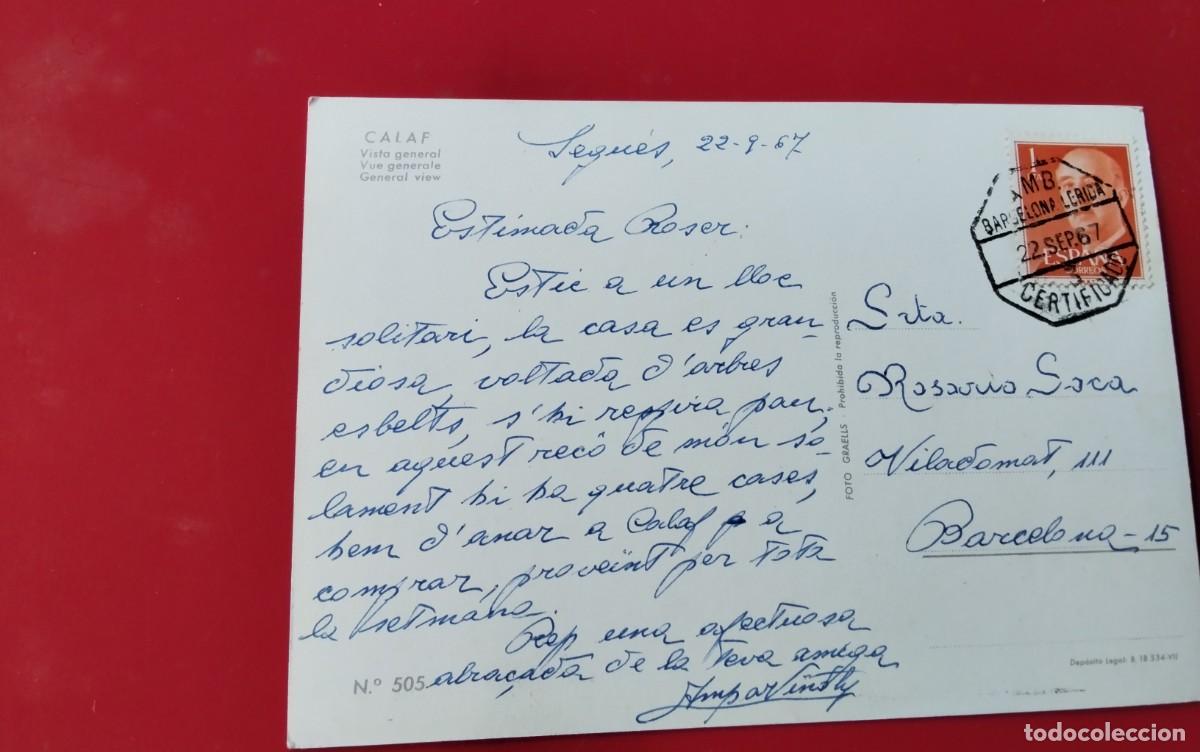 CALAF
Vista general
Vue generale
General view
Segués, 22-9-67
Estimada Roser:
Estic a un lloc
solitari, la casa es gran-
diosa, voltada d'arbres
esbelts, s'hi respira pau,
en aquest recó de món so-
lament hi ha quatre cases,
hem d'anar a Calaf a
comprar, proveint per tota
la setmana.
Rep una afectuosa
abraçada de la teva amiga
Ampar
N.º 505
FOTO GRAELLS - Prohibida la reproducción
1
ESPAÑA
CORREOS
AMB.
BARCELONA LERIDA
22 SEP.67
CERTIFICADO
Srta.
Rosario Soca
Viladomat, 111
Barcelona-15
Depósito Legal: B. 18.534-VII
todocoleccion